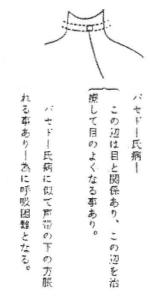 バセドー氏病ー
この辺は目と関係あり、この辺を治
療して目のよくなる事あり。
バセドー氏病に似て声帯の下の方脹
れる事ありー為に呼吸困難となる。